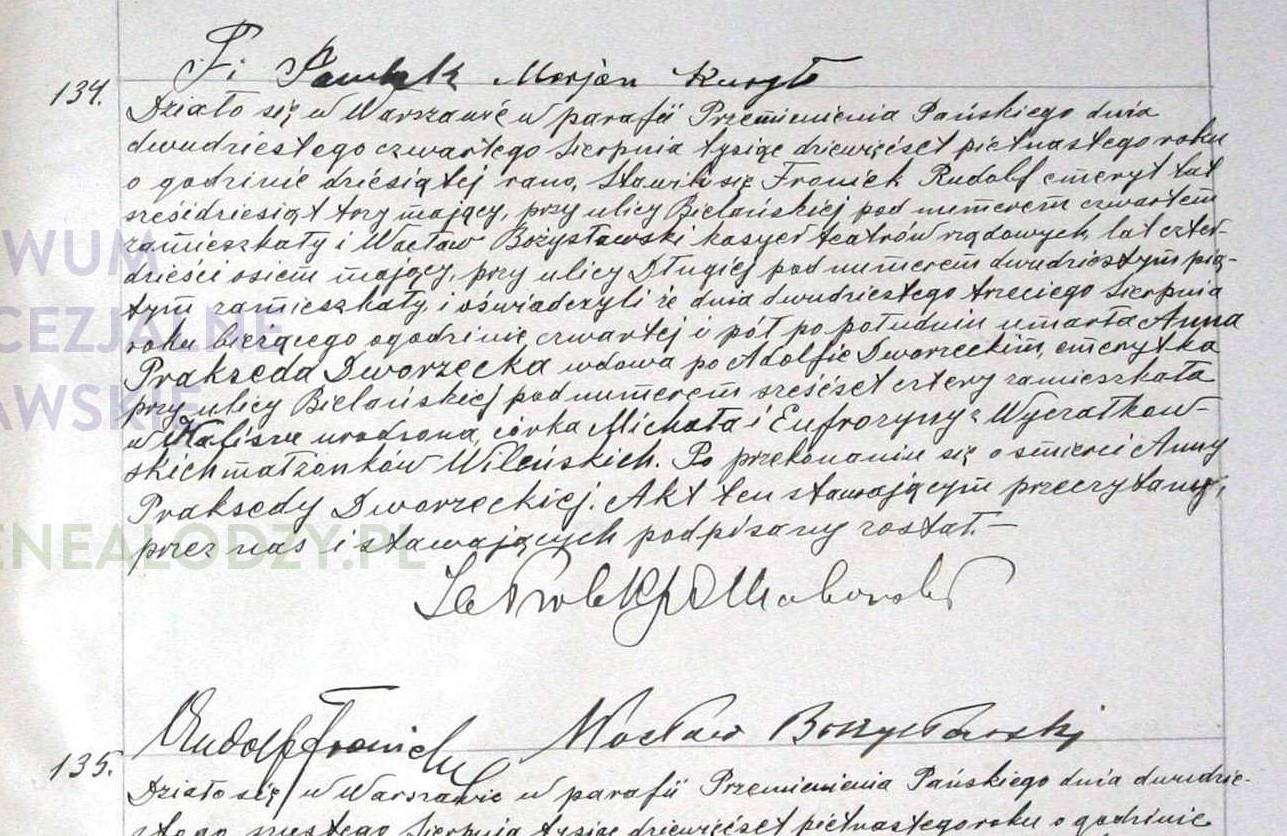 Marjan Kuryło
134.
Działo się w Warszawie w parafii Przemienienia Pańskiego dnia
dwudziestego czwartego Sierpnia tysiąc dziewięćset piętnastego roku
o godzinie dziesiątej rano, Stawili się Froniek Rudolf emeryt lat
sześćdziesiąt trzy mający, przy ulicy Bielańskiej pod numerem czwartem
zamieszkały i Wacław Bożysławski kasyer teatrów rządowych, lat czter-
dzieści osiem mający, przy ulicy Długiej pod numerem dwudziestym pią-
tym zamieszkały, i oświadczyli że dnia dwudziestego trzeciego Sierpnia
roku bieżącego o godzinie czwartej i pół po południu umarła Anna
Prakseda Dworzecka wdowa po Adolfie Dworzeckim, emerytka
przy ulicy Bielańskiej pod numerem sześćset cztery zamieszkała
w Kaliszu urodzona, córka Michała i Eufrozyny z Wyczałkow-
skich małżonków Wileńskich. Po przekonaniu się o śmierci Anny
Praksedy Dworzeckiej. Akt ten stawającym przeczytany,
przez nas i stawających podpisany został.—
Rudolf Froniek Wacław Bożysławski
135.
Działo się w Warszawie w parafii Przemienienia Pańskiego dnia dwudzie-
stego szóstego Sierpnia tysiąc dziewięćset piętnastego roku o godzinie
WUM
CEZJALNE
AWSKIE
ENEALODZY.PL